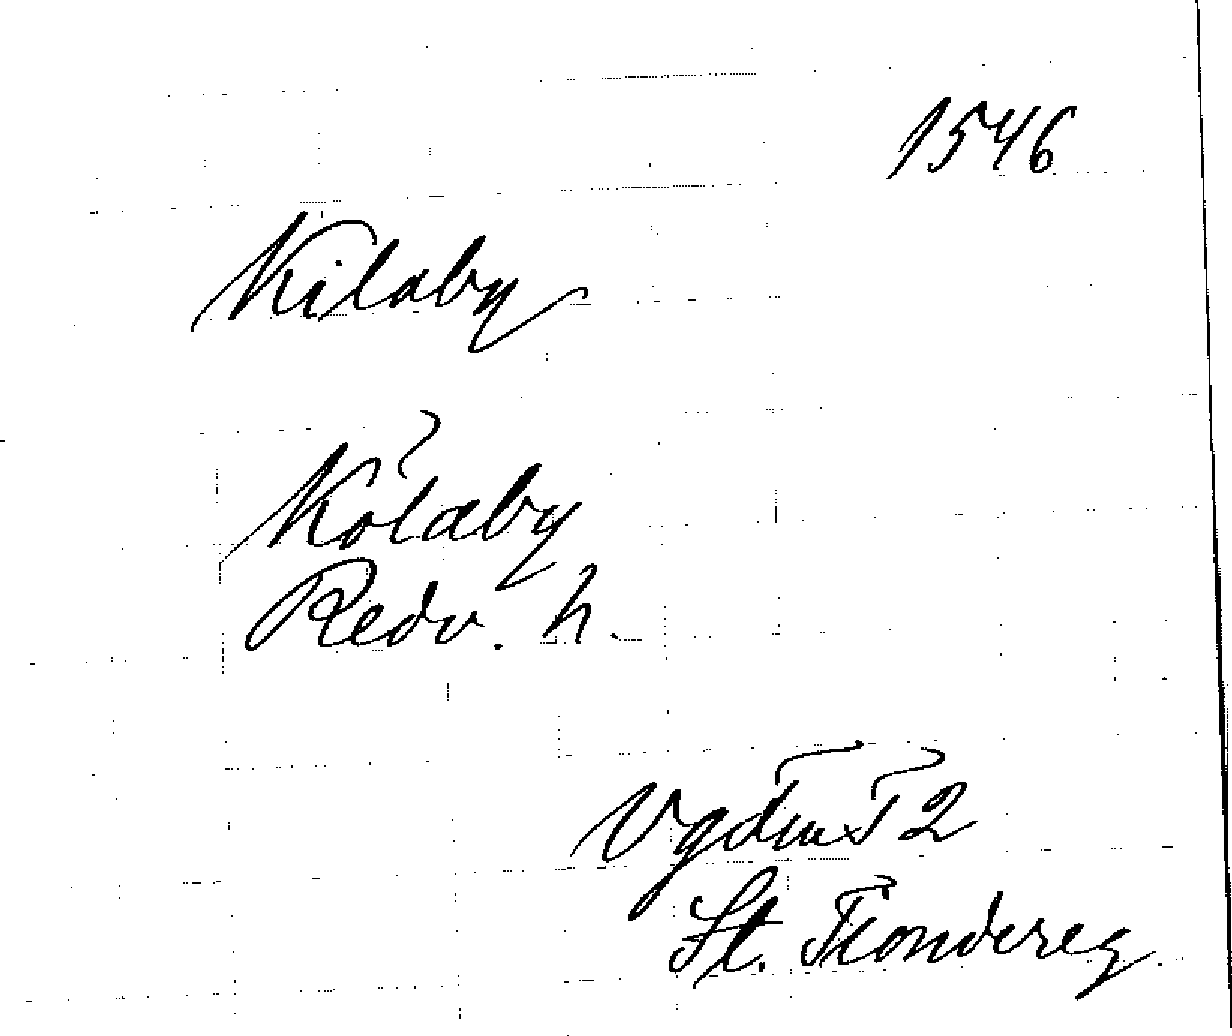 1546
Kilaby
Kölaby
Redv. h.
Vgdm T 2
St. Tiondereg